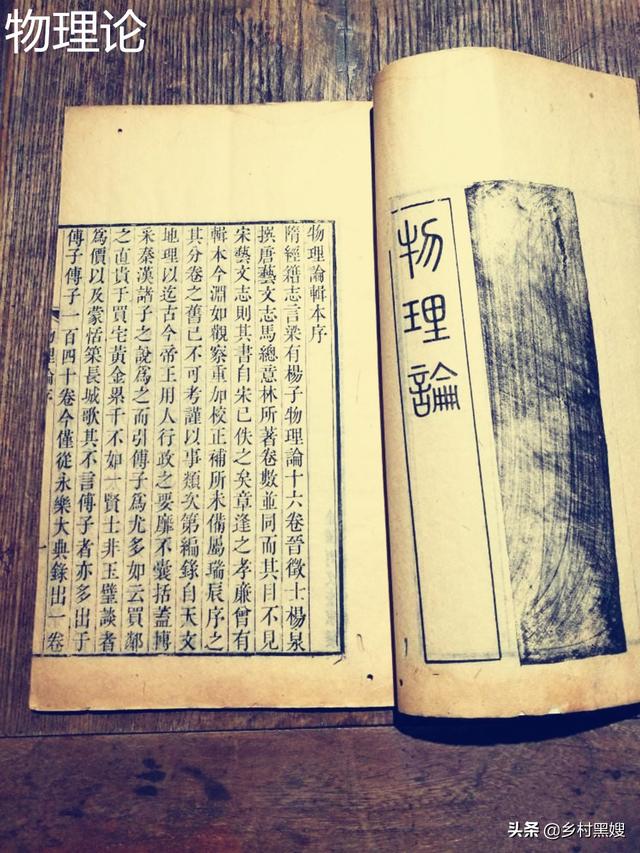 物理论
物理論
物理論輯本序
隋經籍志言梁有楊子物理論十六卷晉徵士楊泉
撰唐藝文志馬總意林所著卷數並同而其目不見
宋藝文志則其書自宋已佚之矣章逢之孝廉曾有
輯本今淵如觀察重加校正補所未備屬瑞辰序之
其分卷之舊已不可考謹以事類次第編錄自天文
地理以迄古今帝王用人行政之要靡不囊括蓋博
采秦漢諸子之說為之而引傅子為尤多如云買鄰
之直貴于買宅黃金累千不如一賢士非玉璧談者
為價以及蒙恬築長城歌其不言傅子者亦多出于
傅子傅子一百四十卷今僅從永樂大典錄出一卷
物理論序
一
头条 @乡村黑嫂